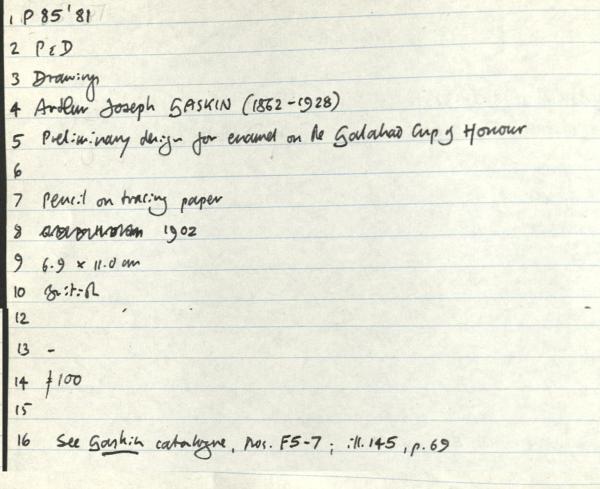 1 P 85'81
2 P & D
3 Drawings
4 Arthur Joseph GASKIN (1862-1928)
5 Preliminary design for enamel on the Galahad Cup of Honour
6
7 Pencil on tracing paper
8 1902
9 6.9 x 11.0 cm
10 British
12
13 -
14 100
15
16 See Gaskin catalogue, nos. F5-7; ill. 145, p. 69